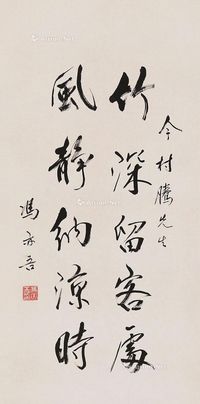 今村騰先生
竹深留客處
風静納涼時
馮亦吾